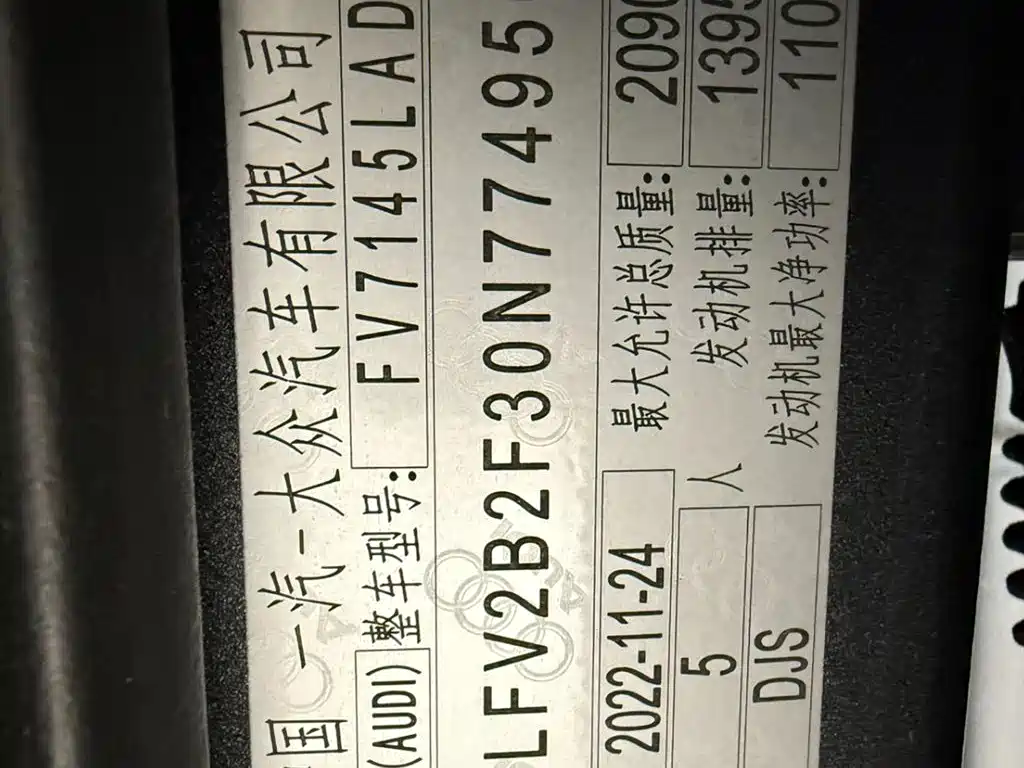 中国 一汽-大众汽车有限公司
(AUDI) 整车型号: FV7145LAD
LFV2B2F30N77495
2022-11-24 最大允许总质量: 209
5 人 发动机排量: 139
DJS 发动机最大净功率: 110